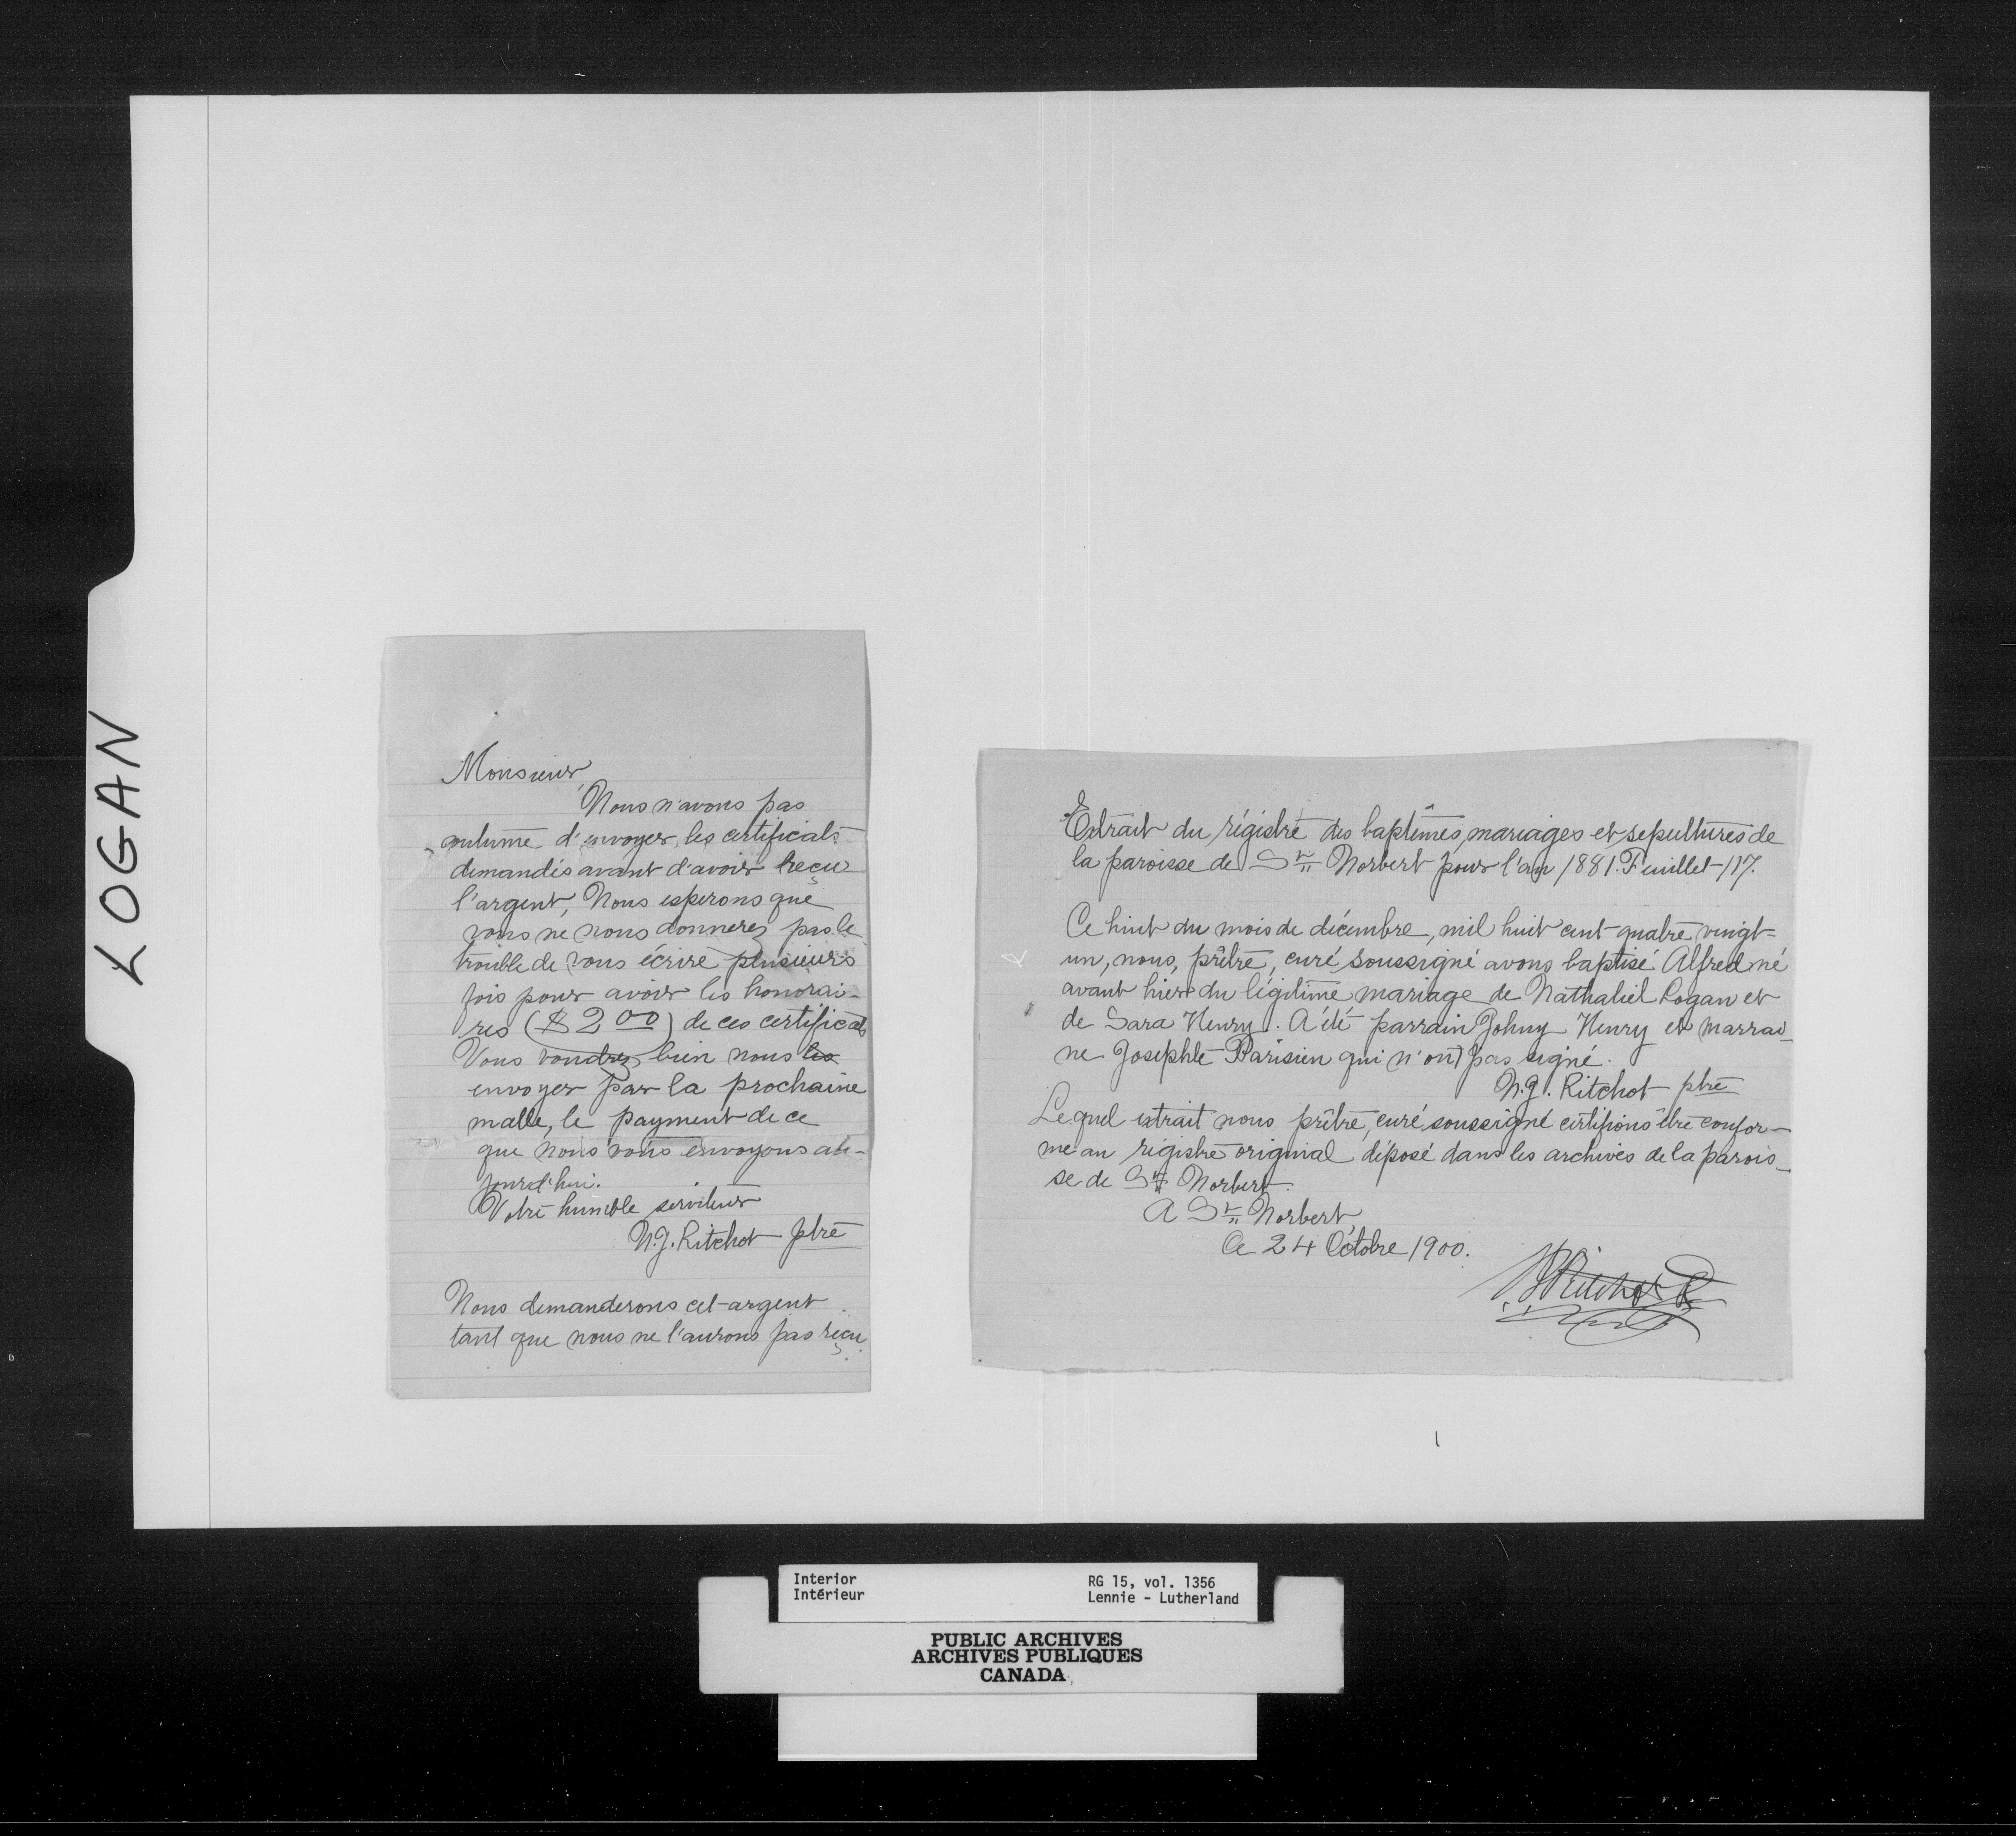 LOGAN
Monsieur,
Nous n'avons pas
coutume d'envoyer les certificats
demandés avant d'avoir reçu
l'argent, Nous esperons que
vous ne nous donnerez pas le
trouble de vous écrire plusieurs
fois pour avoir les honorai-
res ($2 00) de ces certificats
Vous voudrez bien nous les
envoyer par la prochaine
malle, le payment de ce
que nous vous envoyons au-
jourd'hui.
Votre humble serviteur
N.J. Ritchot ptre
Nous demanderons cet argent
tant que nous ne l'aurons pas reçu.
Extrait du régistre des baptêmes, mariages et sepultures de
la paroisse de St Norbert pour l'an 1881. Feuillet 117.
Ce huit du mois de décembre, mil huit cent quatre vingt-
un, nous, prêtre, curé soussigné avons baptisé Alfred né
avant hier du légitime mariage de Nathaliel Logan et
de Sara Henry. A été parrain Johny Henry et marrai-
ne Josephte Parisien qui n'ont pas signé.
N.J. Ritchot ptre
Lequel extrait nous prêtre, curé soussigné certifions être confor-
me au régistre original déposé dans les archives de la parois-
se de St Norbert.
A St Norbert,
Ce 24 Octobre 1900.
NJ Ritchot Ptr
Interior
Intérieur
RG 15, vol. 1356
Lennie - Lutherland
PUBLIC ARCHIVES
ARCHIVES PUBLIQUES
CANADA